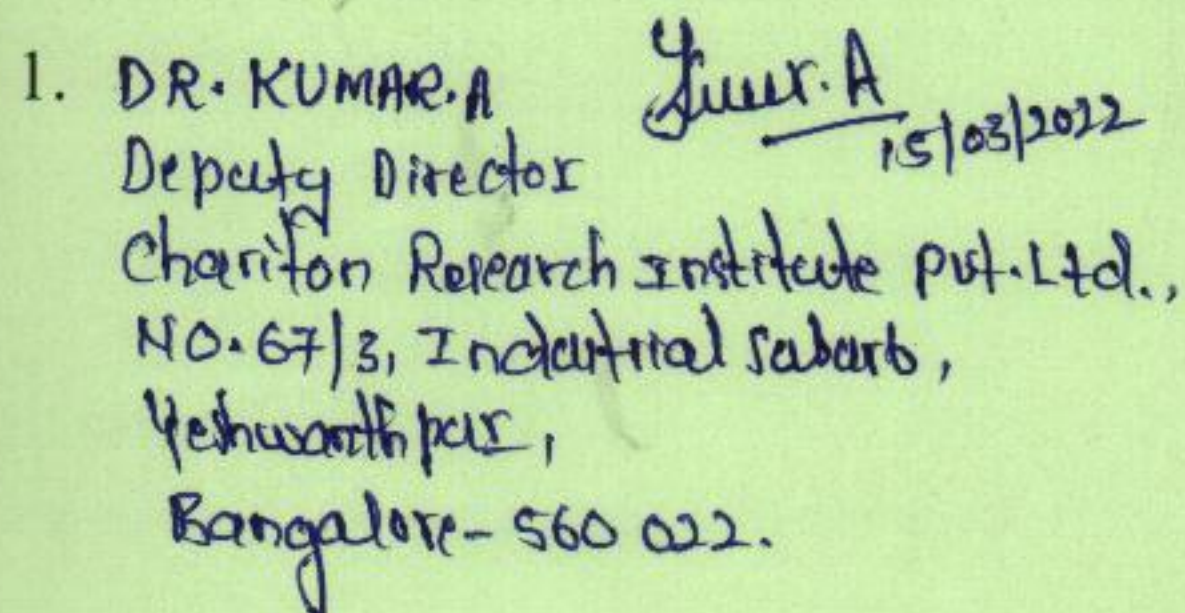 1. DR. KUMAR.A
Kumar.A
15/03/2022
Deputy Director
Chariton Research Institute Pvt. Ltd.,
NO. 67/3, Industrial Suburb,
Yeshwanthpur,
Bangalore - 560 022.